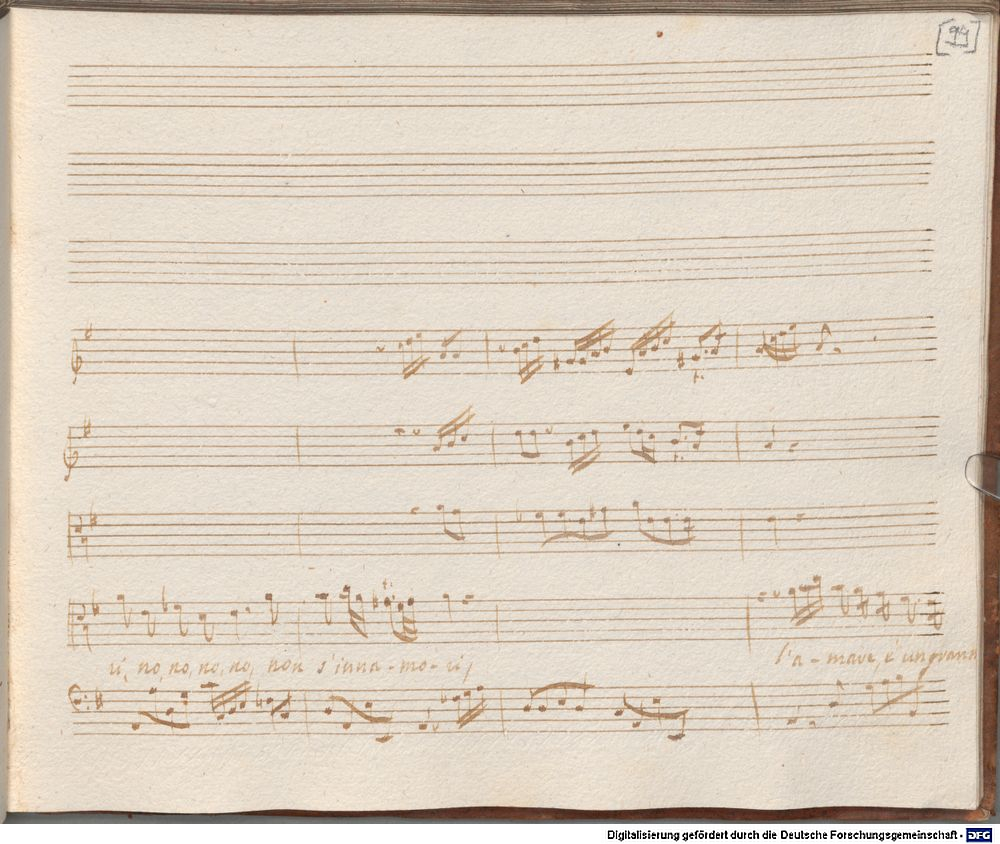 [94]
ri, no, no, no, no, non s'inna-mo-ri,
l'a-mare, è un
Digitalisierung gefördert durch die Deutsche Forschungsgemeinschaft - DFG